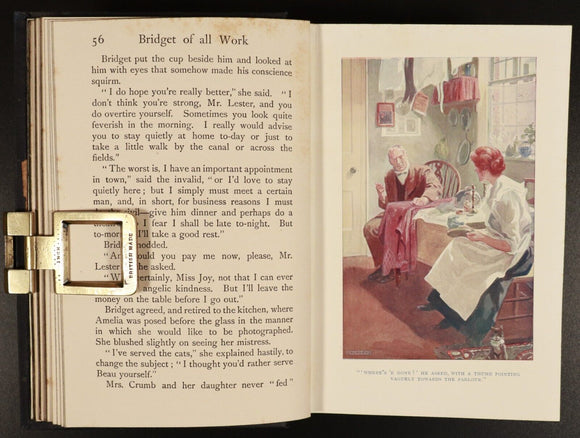 56 Bridget of all Work
Bridget put the cup beside him and looked at
him with eyes that somehow made his conscience
squirm.
"I do hope you're really better," she said. "I
don't think you're strong, Mr. Lester, and you
do overtire yourself. Sometimes you look quite
feverish in the morning. I really would advise
you to stay quietly at home to-day or just to
take a little walk by the canal or across the
fields."
"The worst is. I have an important appointment
in town," said the invalid, "or I'd love to stay
quietly here; but I simply must meet a certain
man, and, in short, for business reasons I must
civil—give him dinner and perhaps do a
I fear I shall be late to-night. But
to-mor I'll take a good rest."
Brid nodded.
"An ould you pay me now, please, Mr.
Lester he asked.
"W ertainly, Miss Joy, not that I can ever
angelic kindness. But I'll leave the
money on the table before I go out."
Bridget agreed, and retired to the kitchen, where
Amelia was posed before the glass in the manner
in which she would like to be photographed.
She blushed slightly on seeing her mistress.
"I've served the cats," she explained hastily, to
change the subject; "I thought you'd rather serve
Beau yourself."
Mrs. Crumb and her daughter never "fed"
BRITISH MADE
"'WHERE'S 'E GONE?' HE ASKED, WITH A THUMB POINTING
VAGUELY TOWARDS THE PARLOUR."